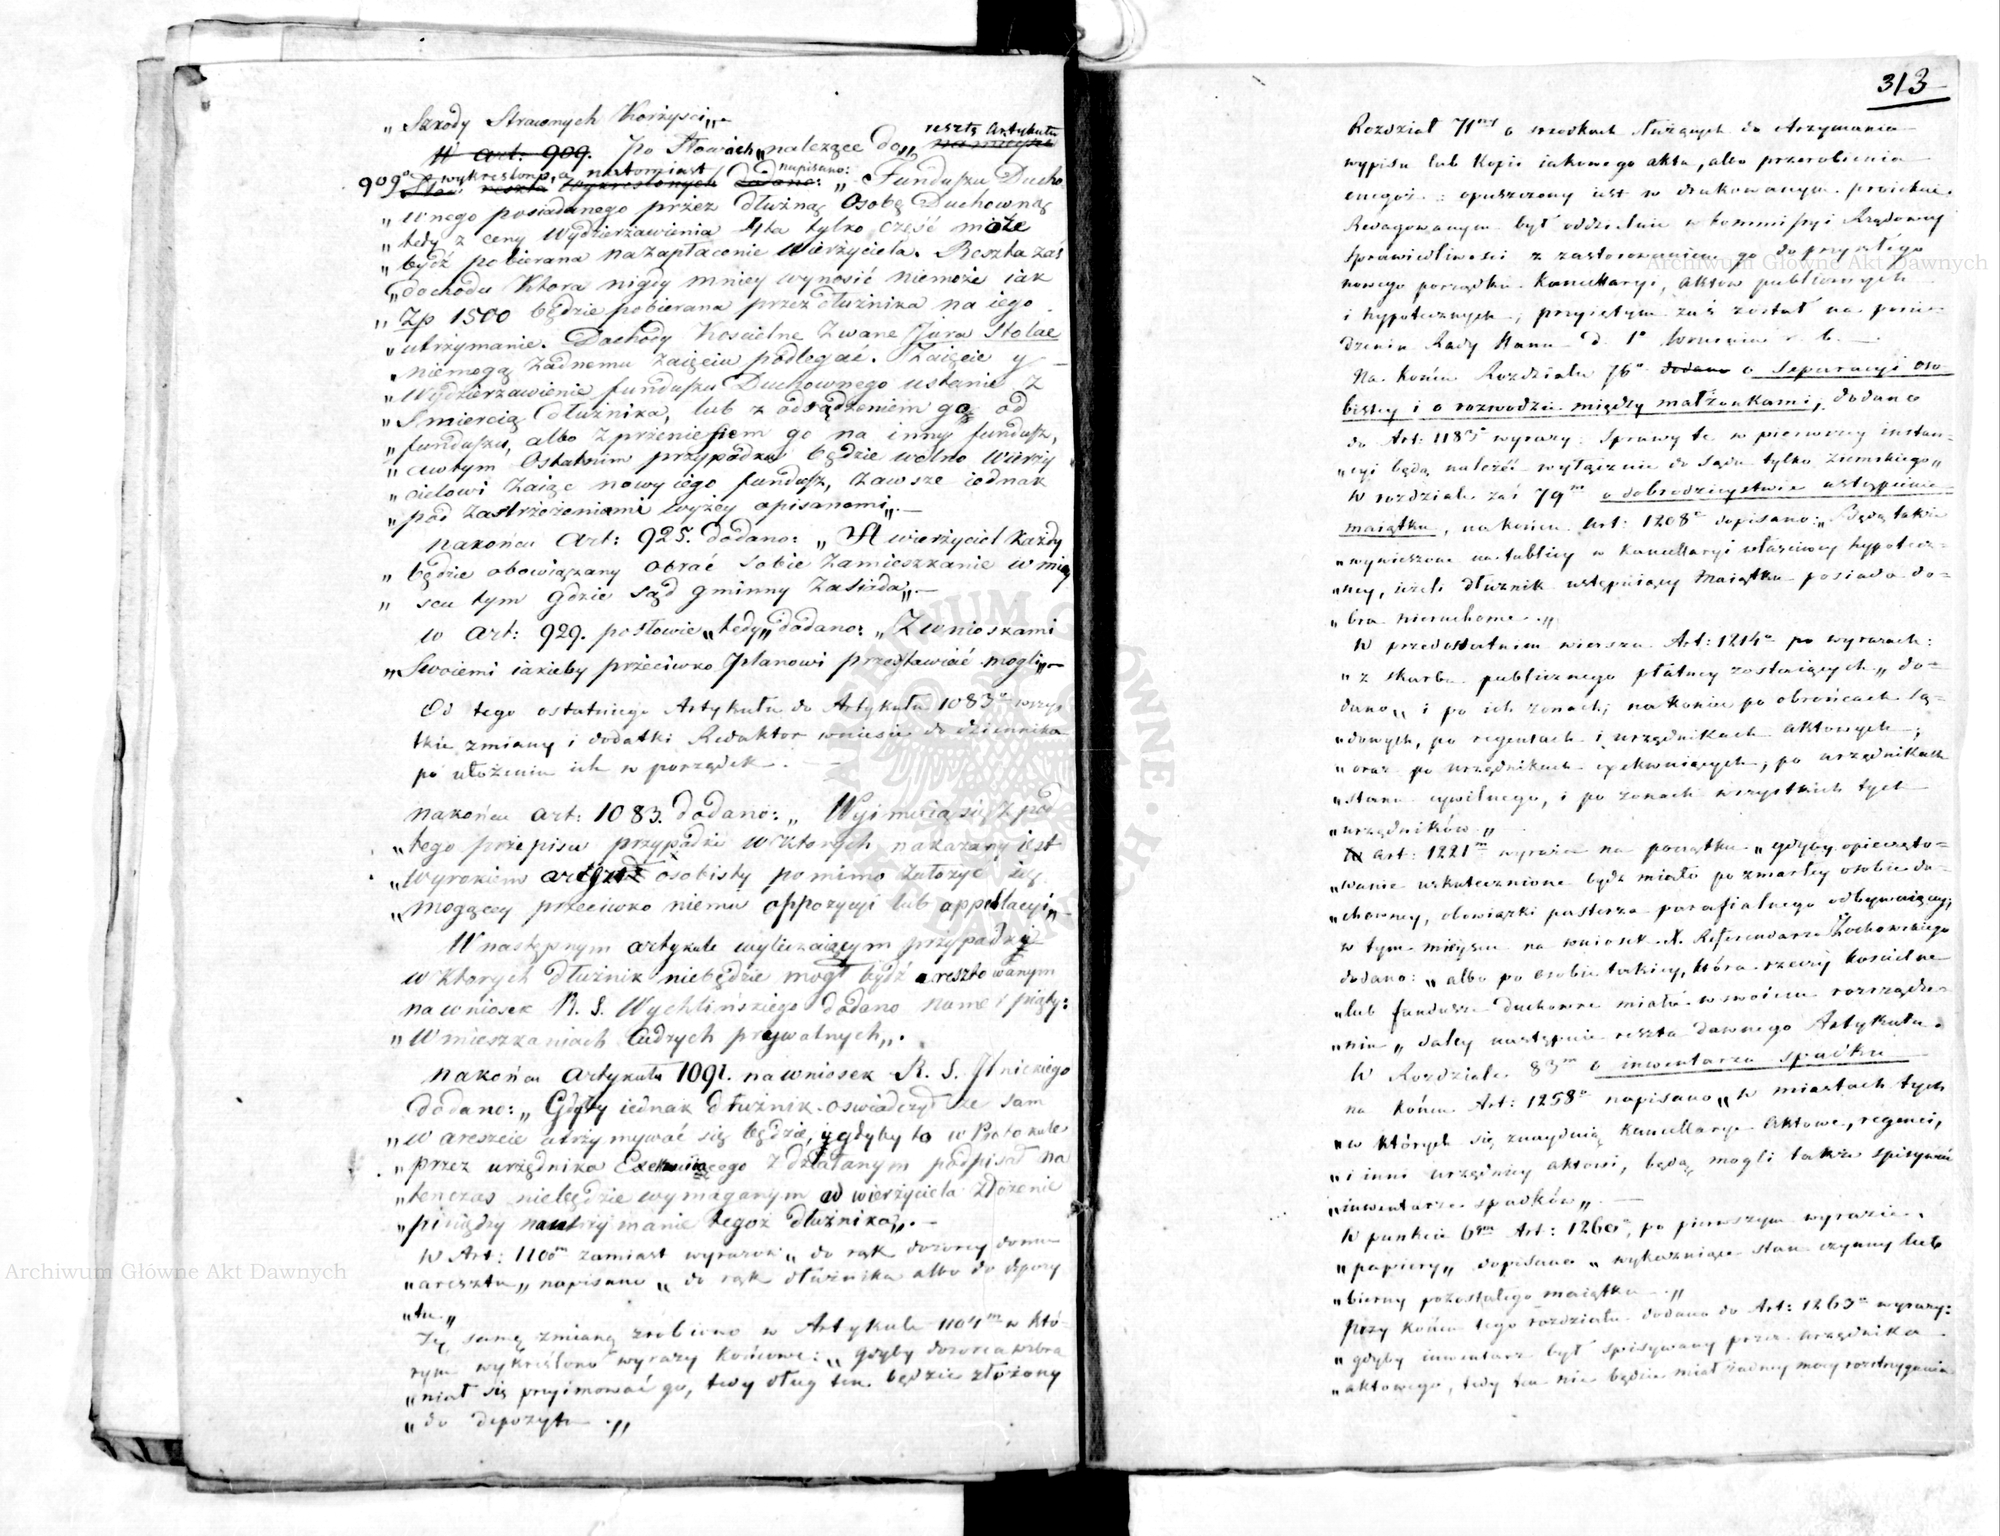 „ Szkody Straconych Korzysci„ –
W art: 909. Po Słowach „nalezące do„ resztę Artykułu
909o wykreślono, a natomiast napisano: „ Funduszu Ducho
„ wnego posiadanego przez dłużną Osobę Duchowną
„ tedy z ceny Wydzierżawienia 4ta tylko część może
„ bydź pobierana na zapłacenie Wierzyciela. Reszta zaś
„ dochodu Ktora nigdy mniey wynosić niemoże iak
„ Zp 1500 będzie pobierana przez dłużnika na iego
„ utrzymanie. Dochody Koscielne Zwane Jura Stolae
„ niemogą żadnemu Zaięciu podlegać. Zaięcie y
„ Wydzierzawienie funduszu Duchownego ustanie z
„ Smiercią dłużnika, lub z odsądzeniem go od
„ funduszu, albo z przeniesieniem go na inny fundusz,
„ w tym Ostatnim przypadku będzie wolno Wierzy
„ cielowi Zaiąć nowy iego fundusz, zawsze iednak
„ pod zastrzezeniami wyżey opisanemi„. –
nakońcu Art: 925. dodano: „ A wierżyciel każdy
„ będzie obowiązany obrać sobie Zamieszkanie w miey
„ scu tym gdzie sąd gminny Zasiada„. –
w Art: 929. po słowie „tedy„ dodano: „Z wnioskami
„ Swoiemi iakieby przeciwko Planowi przedstawiać mogli„ –
Od tego ostatniego Artykułu do Artykułu 1083o wszy-
tkie zmiany i dodatki Redaktor wniesie do dziennika
po ułożeniu ich w porządek. –
nakońcu Art: 1083. dodano: „ Wyimuią się z pod
„ tego przepisu przypadki w Ktorych nakazany iest
„ wyrokiem areszt osobisty pomimo Założyć się
„ mogącey przeciwko niemu oppozycyi lub appellacyi„ –
W następnym artykule wyliczaiącym przypadki
w Ktorych dłużnik niebędzie mogł bydź aresztowanym
na wniosek R. S. Wychlińskiego dodano numer piąty:
„ W mieszkaniach Cudzych prywatnych„.
nakońcu Artykułu 1091. na wniosek R. S. Jłnickiego
dodano: „ Gdyby iednak dłużnik oswiadczył że sam
„ w areszcie utrzymywać się będzie, y gdyby to w Protokule
„ przez urzędnika Exekwuiącego zdziałanym podpisał na
„ tenczas niebędzie wymaganym od wierzyciela złożenie
„ pieniędzy na utrzymanie tegoż dłużnika„. –
W Art: 1100m zamiast wyrazow „ do rąk dozorcy domu
„ aresztu„ napisano „ do rąk dłużnika albo do depozy
„ tu„
Tę samę zmianę zrobiono w Artykule 1104m w któ-
rym wykreślono wyrazy końcowe: „ gdyby dozorca wzbra
„ niał się przyimować go, tedy dług ten będzie złożony
„ do depozytu .„
313
Rozdział 71szy o srodkach służących do otrzymania
wypisu lub kopii iakowego aktu, albo przerobienia
onegoż: opuszczony iest w drukowanym proiekcie.
Redagowanym był oddzielnie w Kommissyi Rządowey
Sprawiedliwosci z zastosowaniem go do przyszłego
nowego porządku Kancellaryi, aktow publicznych
i hypotecznych, przyiętym zaś został na posie-
dzeniu Rady Stanu d. 1o Wrzesnia r. b. –
Na końcu Rozdziału 76o o Separacyi oso-
bistey i o rozwodzie między małżonkami, dodano
do Art: 1185o wyrazy: Sprawy te w pierwszey instan-
„cyi będą należéć wyłącznie do sądu tylko Ziemskiego„
W rozdziale zaś 79m o dobrodzieystwie ustąpienia
maiątku, na końcu Art: 1208o dopisano: „Będą także
„wywieszone na tablicy w Kancellaryi właściwey hypotecz-
„ney, ieżeli dłużnik ustępuiący Maiątku posiada do-
„bra nieruchome.„
W przedostatnim wierszu Art: 1214o po wyrazach:
„ z skarbu publicznego płatney zostaiących„ do-
dano „ i po ich żonach; nakoniec po obrońcach są-
„dowych, po regentach i urzędnikach aktowych,
„oraz po urzędnikach exekwuiących, po urzędnikach
„stanu cywilnego, i po żonach wszystkich tych
„urzędników„
W Art: 1221m wyrażo na początku „gdyby opieczęto-
„wanie uskutecznione bydź miało po zmarłey osobie du-
„chowney, obowiązki pasterza parafialnego odbywaiącey;
w tym mieyscu na wniosek X. Referendarza Żochowskiego
dodano: „ albo po osobie takiey, która rzeczy kościelne
„lub fundusze duchowne miała w swoiem rozrządze-
„niu„ daley następuie reszta dawnego Artykułu.
W Rozdziale 83m o inwentarzu spadku
na końcu Art: 1258o napisano „ w miastach tych
„w których się znayduią kancellarye aktowe, regenci,
„i inni urzędnicy aktowi, będą mogli także spisywać
„inwentarze spadków„. –
W punkcie 6tym Art: 1260o, po pierwszym wyrazie
„papiery„ dopisano „ wykazuiące stan czynny lub
„bierny pozostałego maiątku.„
Przy końcu tego rozdziału dodano do Art: 1263o wyrazy:
„gdyby inwentarz był spisywany przez urzędnika
„aktowego, tedy ten nie będzie miał żadney mocy rozstrzygania
Archiwum Główne Akt Dawnych
Archiwum Główne Akt Dawnych